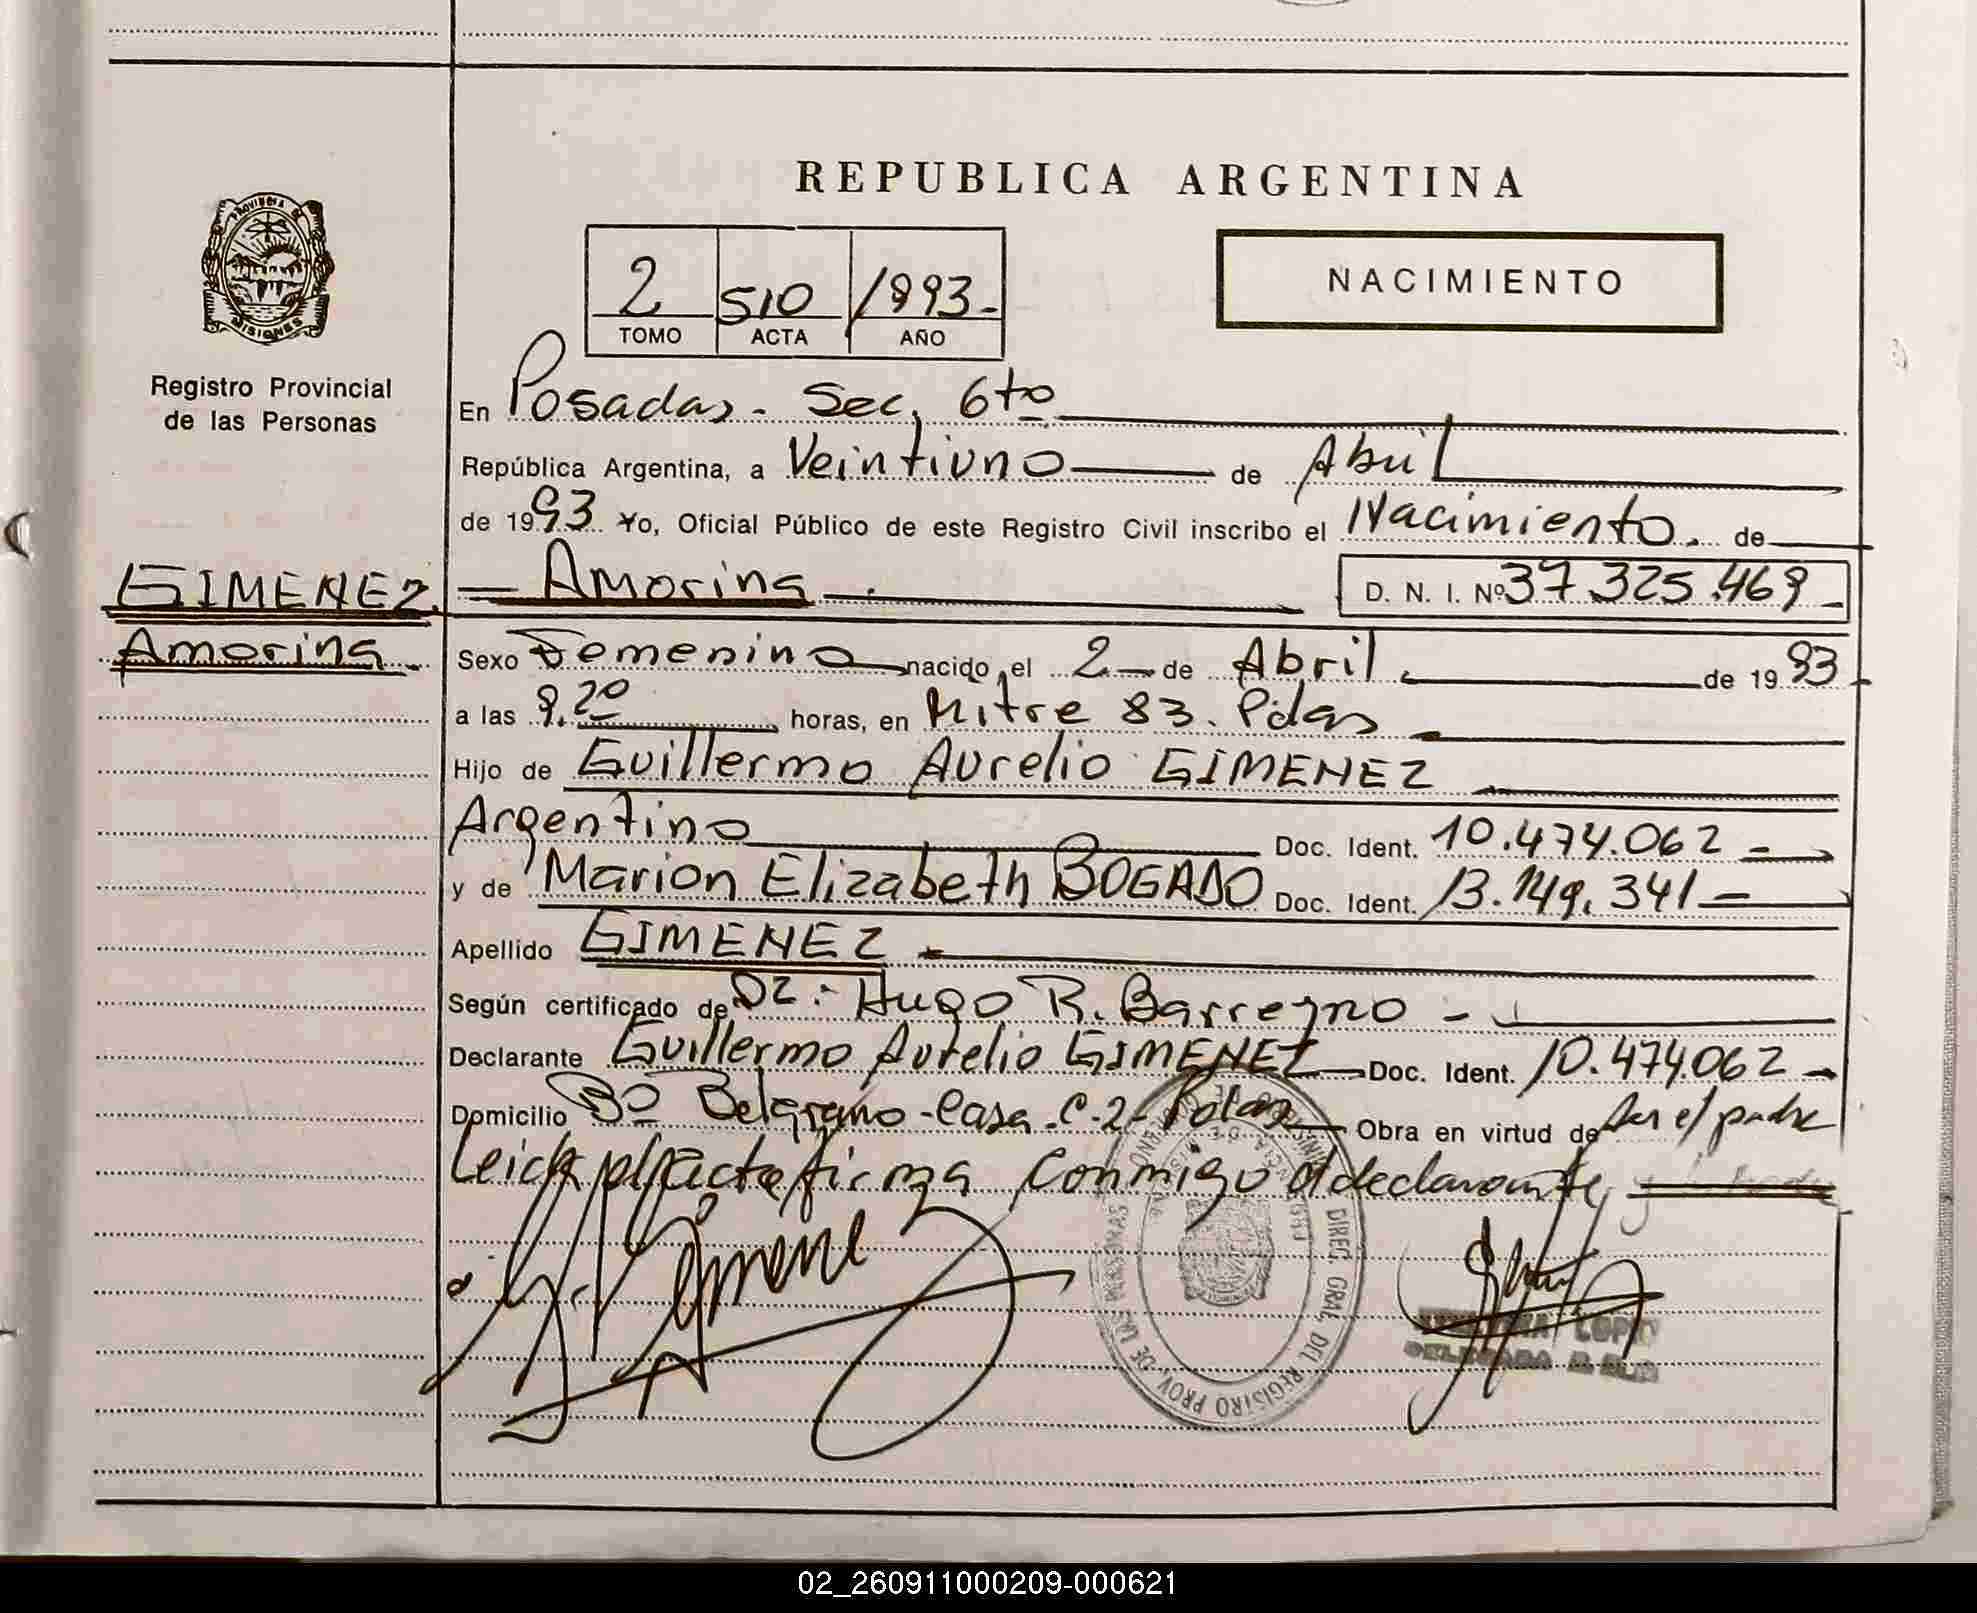 REPUBLICA ARGENTINA
PROVINCIA DE
MISIONES
Registro Provincial
de las Personas
2 510 1993-
TOMO ACTA AÑO
NACIMIENTO
En Posadas - Sec. 6to
República Argentina, a Veintiuno de Abril
de 1993 Yo, Oficial Público de este Registro Civil inscribo el Nacimiento. de
GIMENEZ
Amorina
Amorina D. N. I. Nº 37.325.469
Sexo Femenino nacido el 2 de Abril de 1993
a las 9.20 horas, en Mitre 83. Pdas
Hijo de Guillermo Aurelio GIMENEZ
Argentino Doc. Ident. 10.474.062
y de Marion Elizabeth BOGADO Doc. Ident. 13.149.341
Apellido GIMENEZ
Según certificado de Dr. Hugo R.
Declarante Guillermo Aurelio GIMENEZ Doc. Ident. 10.474.062
Domicilio Bº Belgrano - Casa C-2 - Pdas Obra en virtud de ser el padre
Leida el acta firma conmigo el declarante
G. Gimene
DIREC. GRAL. DEL REGISTRO PROV. DE LAS PERSONAS
LOPEZ
DELEGADA
02_260911000209-000621